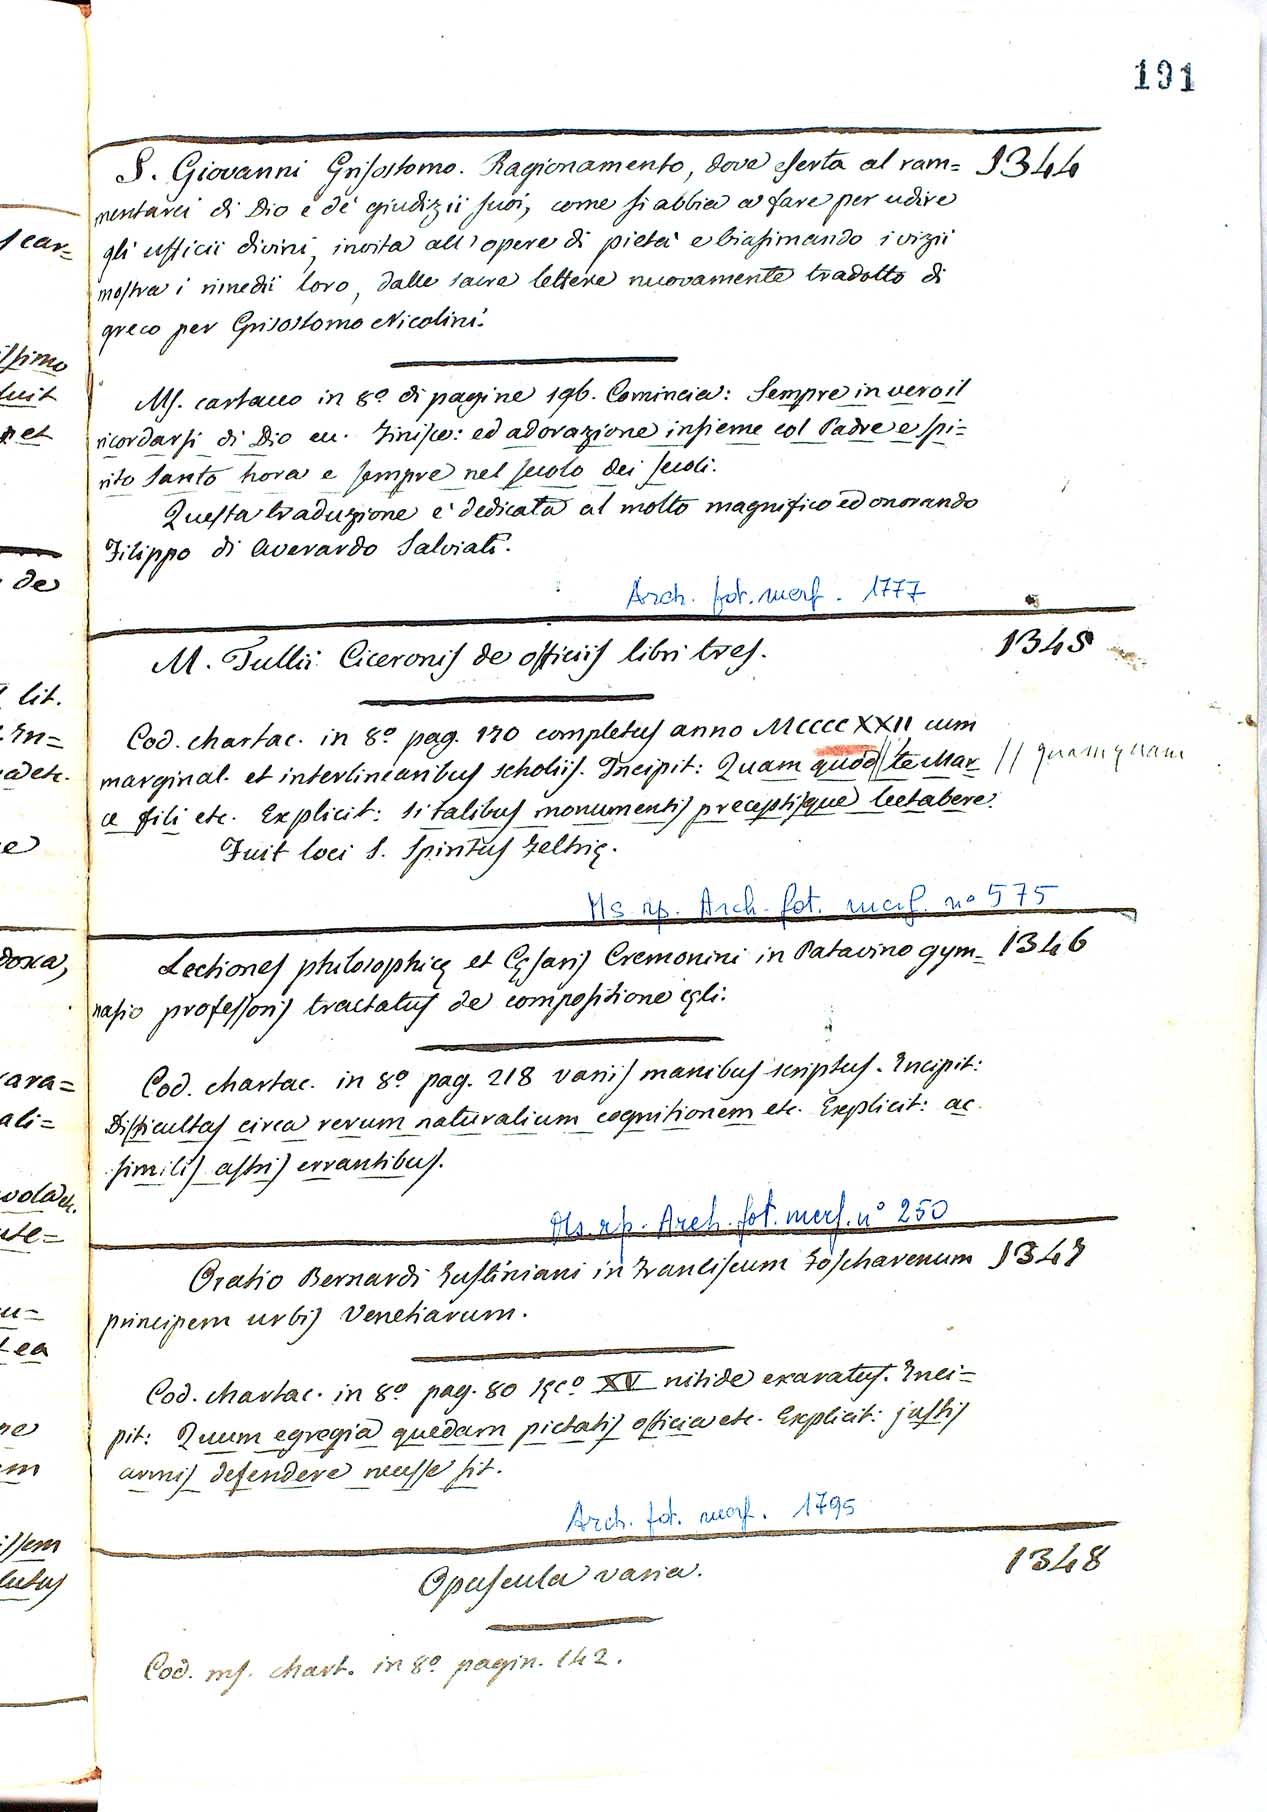 191
S. Giovanni Grisostomo. Ragionamento, dove esorta al ram= 1344
mentarci di Dio e de' giudizii suoi, come si abbia a fare per udire
gli ufficii divini, invita all'opere di pietà e biasimando i vizii
mostra i rimedii loro, dalle sacre lettere nuovamente tradotto di
greco per Grisostomo Nicolini.
Ms. cartaceo in 8º di pagine 196. Comincia: Sempre in vero il
ricordarsi di Dio ec. Finisce: ed adorazione insieme col Padre e Spi=
rito Santo hora e sempre nel secolo dei secoli.
Questa traduzione è dedicata al molto magnifico ed onorando
Filippo di Averardo Salviati.
Arch. fot. marf. 1777
M. Tullii Ciceronis de officiis libri tres. 1345
Cod. chartac. in 8º pag. 170 completus anno MCCCCXXII cum
marginal. et interlinearibus scholiis. Incipit: Quam quod // te Mar= // quamquam
ce fili etc. Explicit: si talibus monumentis preceptisque letabere.
Fuit loci S. Spiritus Feltrię.
Ms. rip. Arch. fot. marf. nº 575
Lectiones philosophicę et Cęsaris Cremonini in Patavino gym= 1346
nasio professoris tractatus de compositione cęli.
Cod. chartac. in 8º pag. 218 variis manibus scriptus. Incipit:
Difficultas circa rerum naturalium cognitionem etc. Explicit: ac
similis astris errantibus.
Ms. rip. Arch. fot. marf. nº 250
Oratio Bernardi Justiniani in Franciscum Foscharenum 1347
principem urbis Venetiarum.
Cod. chartac. in 8º pag. 80 sęcº XV nitide exaratus. Inci=
pit: Quum egregia quedam pietatis officia etc. Explicit: justis
armis defendere necesse sit.
Arch. fot. marf. 1795
Opuscula varia. 1348
Cod. ms. chart. in 8º pagin. 142.